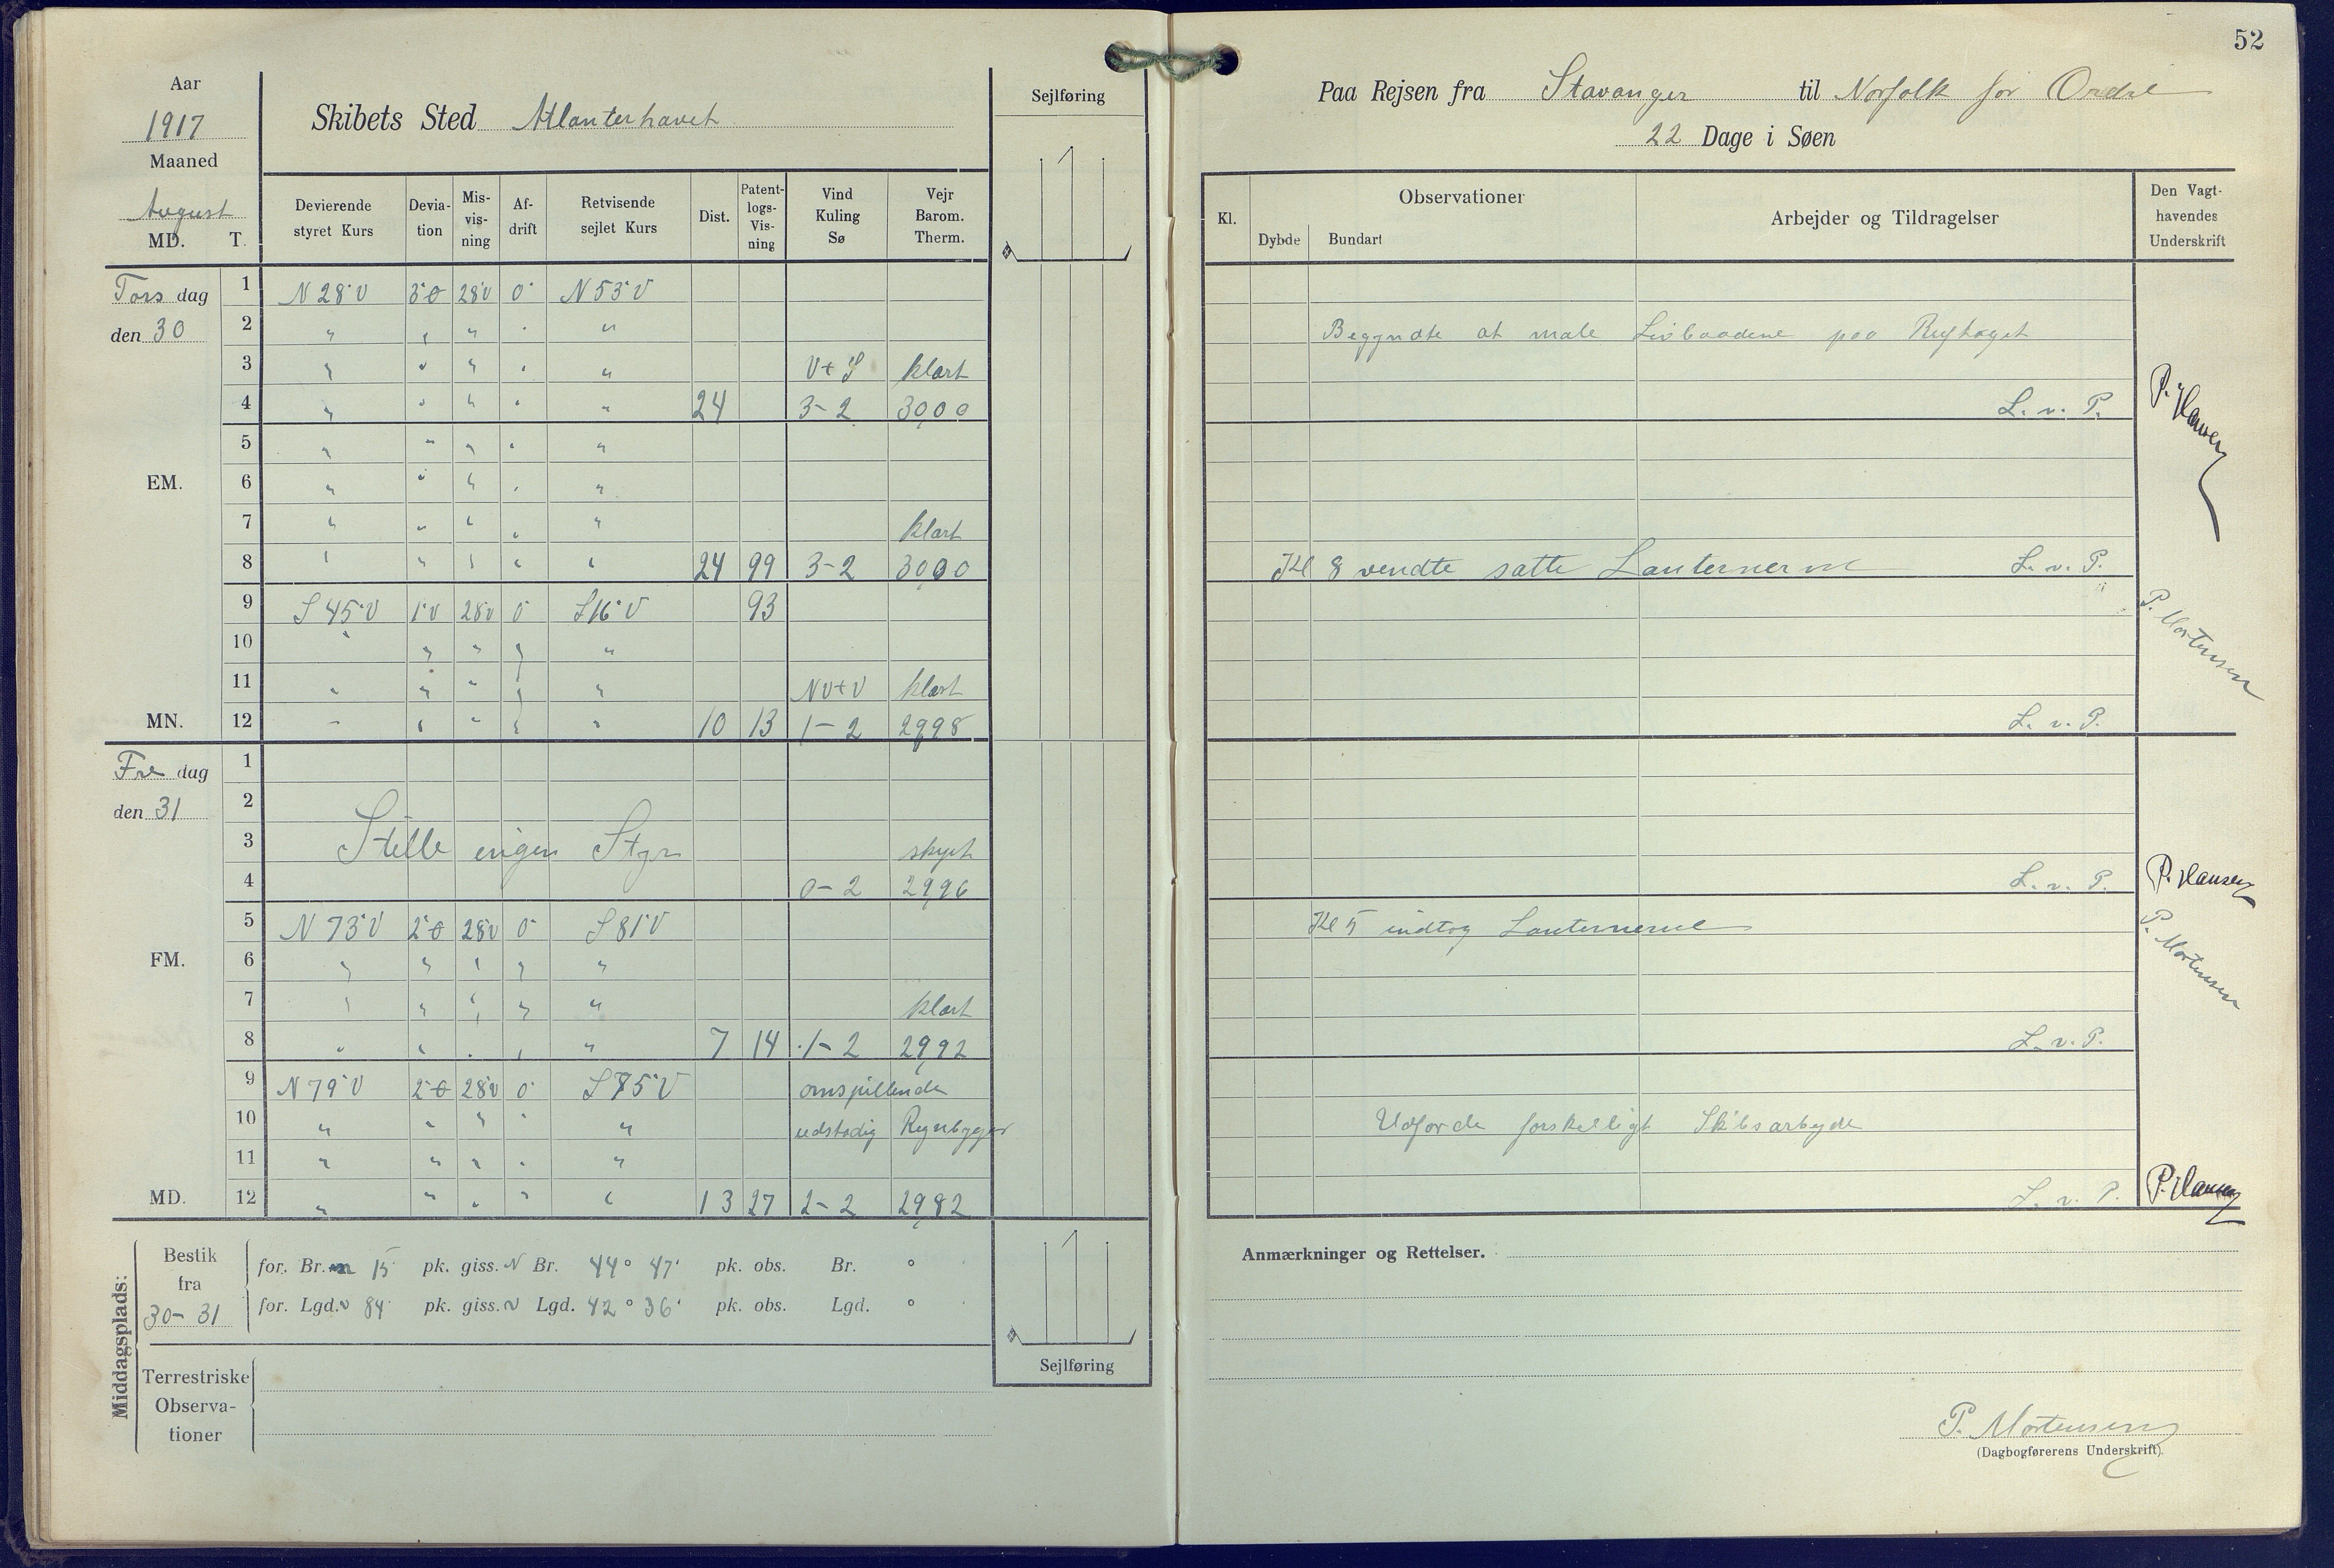 52
Aar
1917
Maaned
August
MD. T.
Skibets Sted Atlanterhavet
Sejlføring
Devierende styret Kurs | Deviation | Misvisning | Afdrift | Retvisende sejlet Kurs | Dist. | Patentlogs-Visning | Vind Kuling Sø | Vejr Barom. Therm.
Torsdag 1 N 28° V 3° O 28° V 0° N 53° V
den 30 2 " " " " "
3 " " " " " V t S klart
4 " " " " " 24 3-2 30,00
5 " " " " "
EM. 6 " " " " "
7 " " " " " klart
8 " " " " " 24 99 3-2 30,00
9 S 45° V 1° V 28° V 0° S 16° V 93
10 " " " " "
11 " " " " " NV t V klart
MN. 12 " " " " " 10 13 1-2 29,98
Fredag 1
den 31 2
3 Stille ingen Styr skyet
4 0-2 29,96
5 N 73° V 2° O 28° V 0° S 81° V
FM. 6 " " " " "
7 " " " " " klart
8 " " " " " 7 14 1-2 29,92
9 N 79° V 2° O 28° V 0° S 75° V omspillende
10 " " " " " udstadig Regnbyger
11 " " " " "
MD. 12 " " " " " 13 27 2-2 29,82
Middagsplads:
Bestik fra 30-31
for. Br. 15' pk. giss. N Br. 44° 47' pk. obs. Br. °
for. Lgd. v 84' pk. giss. v Lgd. 42° 36' pk. obs. Lgd. °
Terrestriske Observationer
Sejlføring
Paa Rejsen fra Stavanger til Norfolk for Ordre
22 Dage i Søen
Kl. | Observationer | Dybde | Bundart | Arbejder og Tildragelser | Den Vagthavendes Underskrift
Begyndte at male Livbaadene paa Rughaget
L. v. P. P. Hansen
Kl 8 vendte satte Lanternerne L. v. P.
P. Mortensen
L. v. P.
L. v. P. P. Hansen
Kl 5 indtog Lanternerne P. Mortensen
L. v. P.
Udforde forskelligt Skibsarbejde
L. v. P. P. Hansen
Anmærkninger og Rettelser.
P. Mortensen
(Dagbogførerens Underskrift).